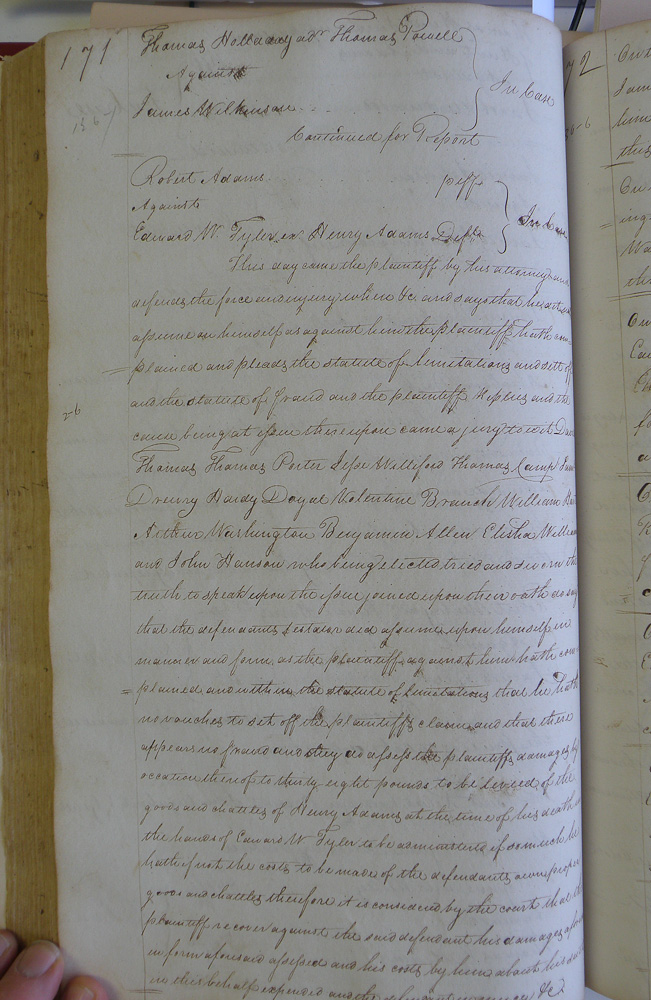 171
Thomas Holladay adr Thomas Powell
Against
James Wilkinson
In Case
Continued for Report
Robert Adams plff
Against
Edward W. Tyler ex Henry Adams Deft
In Case
This day came the plaintiff by his attorney and
defends the force and injury when &c. and says that he did not
assume on himself as against him the plaintiff hath com
plained and pleads the statute of limitations and sett off
and the statute of fraud and the plaintiff replies and the
cause being at issue thereupon came a jury to wit
Thomas Thomas Porter Jesse Williford Thomas Camp
Drewry Hardy Doyal Valentine Branch William
Arthur Washington Benjamin Allen Elisha William
and John Hanson who being elected tried and sworn the
truth to speak upon the issue joined upon their oath do say
that the defendants testator did assume upon himself in
manner and form as the plaintiff against him hath com
plained and within the statute of limitations that he hath
no vouches to set off the plaintiffs claim and that there
appears no fraud and they do assess the plaintiffs damages by
occation thereof to thirty eight pounds to be levied of the
goods and chattles of Henry Adams at the time of his death in
the hands of Edward W Tyler to be administered if so much he
hath if not the costs to be made of the defendants own proper
goods and chattles therefore it is considered by the court that the
plaintiff recover against the said defendant his damages afore
in form aforesaid assessed and his costs by him about his suit
in this behalf expended and the defendant in mercy &c.
72